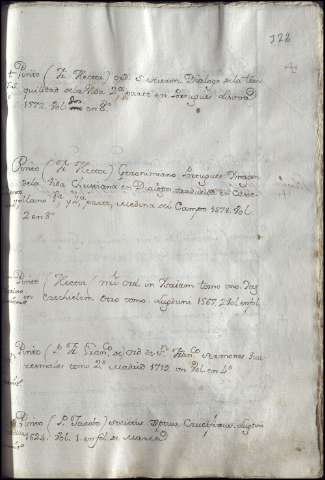 122
Pinto (Fr. Hector) Ord. S. Dialogo de la
quilidad de la Vida 2a. parte en Portugues Lisboa
1572. Vol. en 8o.
Pinto (Fr. Hector) Geronimiano Portugues Imagen
de la Vida Christiana en Dialogos traducida en Caste-
llano 1a. y 2a. parte, Medina del Campo 1578. Vol.
2 en 8o.
Pinto (Hector) in Isaiam tomo uno.
in Ezechielem otro tomo Lugduni 1567, 2 Vol. en fol.
Pinto (P. Fr. Franco. de) Ord. de Sn. Franco. Sermones Qua-
resmales tomo 2o. Madrid 1712. un Vol. en 4o.
Pinto (P. Jacobo) Christus Crucifixus, Lugduni
1624. Vol. 1. en fol. de Marca